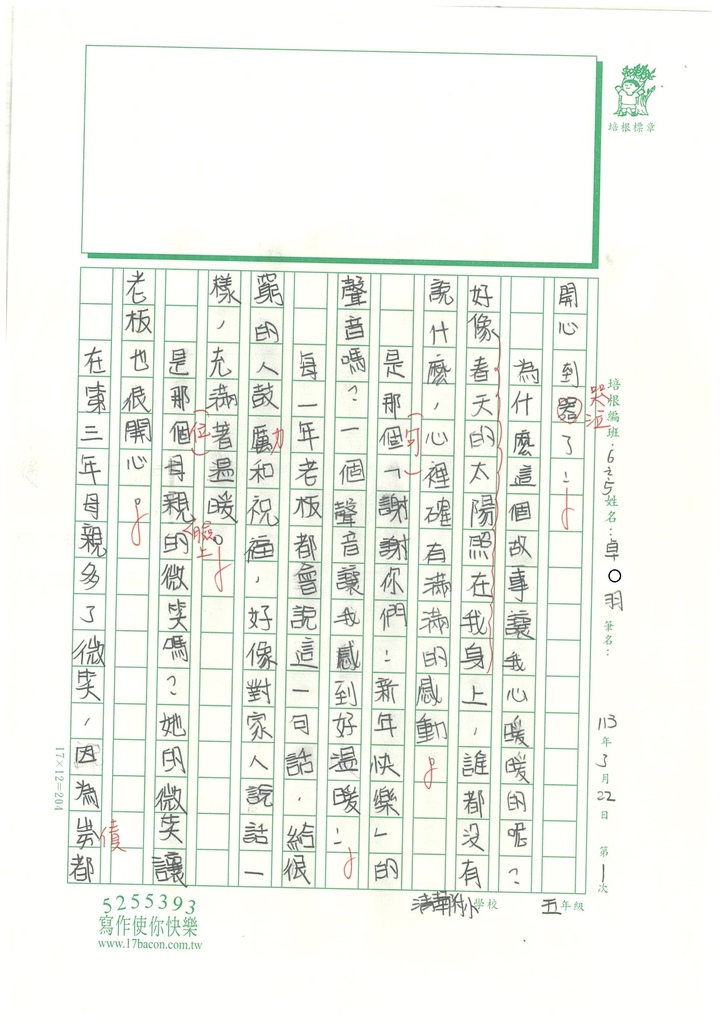 培根標章
培根編班：6之5 姓名：卓○羽 筆名： 113年3月22日 第1次
清華附小 學校 五年級
開心到器了！
哭泣
為什麼這個故事讓我心暖暖的呢？
好像春天的太陽照在我身上，誰都沒有
說什麼，心裡確有滿滿的感動。
是那個「謝謝你們！新年快樂」的
句
聲音嗎？一個聲音讓我感到好溫暖！
每一年老板都會說這一句話，給很
窮的人鼓厲和祝福，好像對家人說話一
力
樣，充滿著溫暖。
是那個母親的微笑嗎？她的微笑讓
位
臉上
老板也很開心。
在第三年母親多了微笑，因為
都
債
17×12=204
5255393
寫作使你快樂
www.17bacon.com.tw